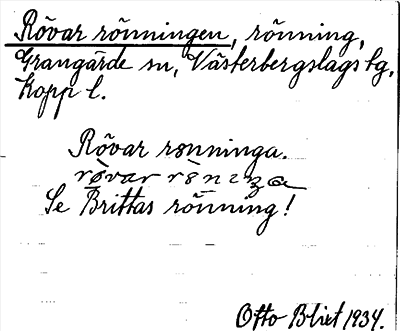 Rövar rönningen, rönning,
Grangärde sn, Västerbergslags tg,
Kopp l.
Rövar rönninga.
Se Brittas rönning!
Otto Blixt 1934.